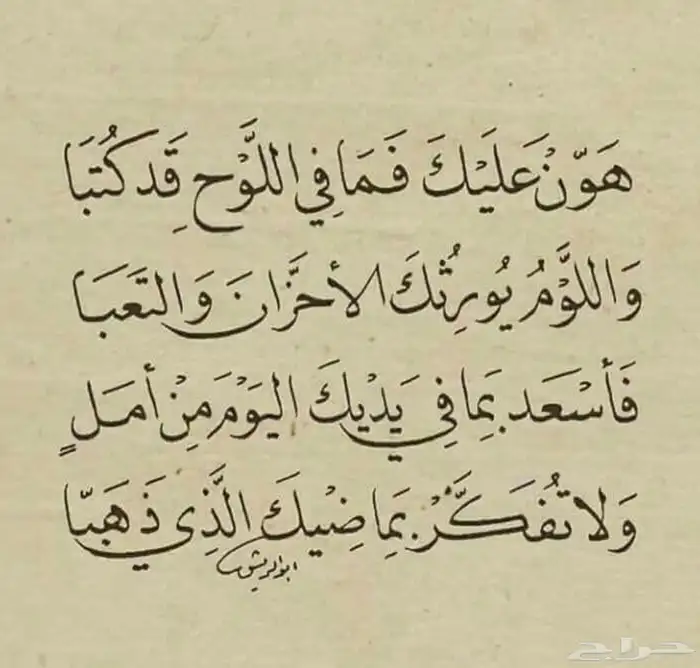 هَوِّنْ عَلَيْكَ فَمَا فِي اللَّوْحِ قَد كُتِبَا
وَاللَّوْمُ يُورِثُكَ الأحْزَانَ وَالتَعَبَا
فَأسْعَد بِمَا فِي يَدَيْكَ اليَوْمَ مِنْ أمَلٍ
وَلا تُفَكِّرْ بِمَاضِيْكَ الَّذِي ذَهَبَا
ابوالريش
حراج